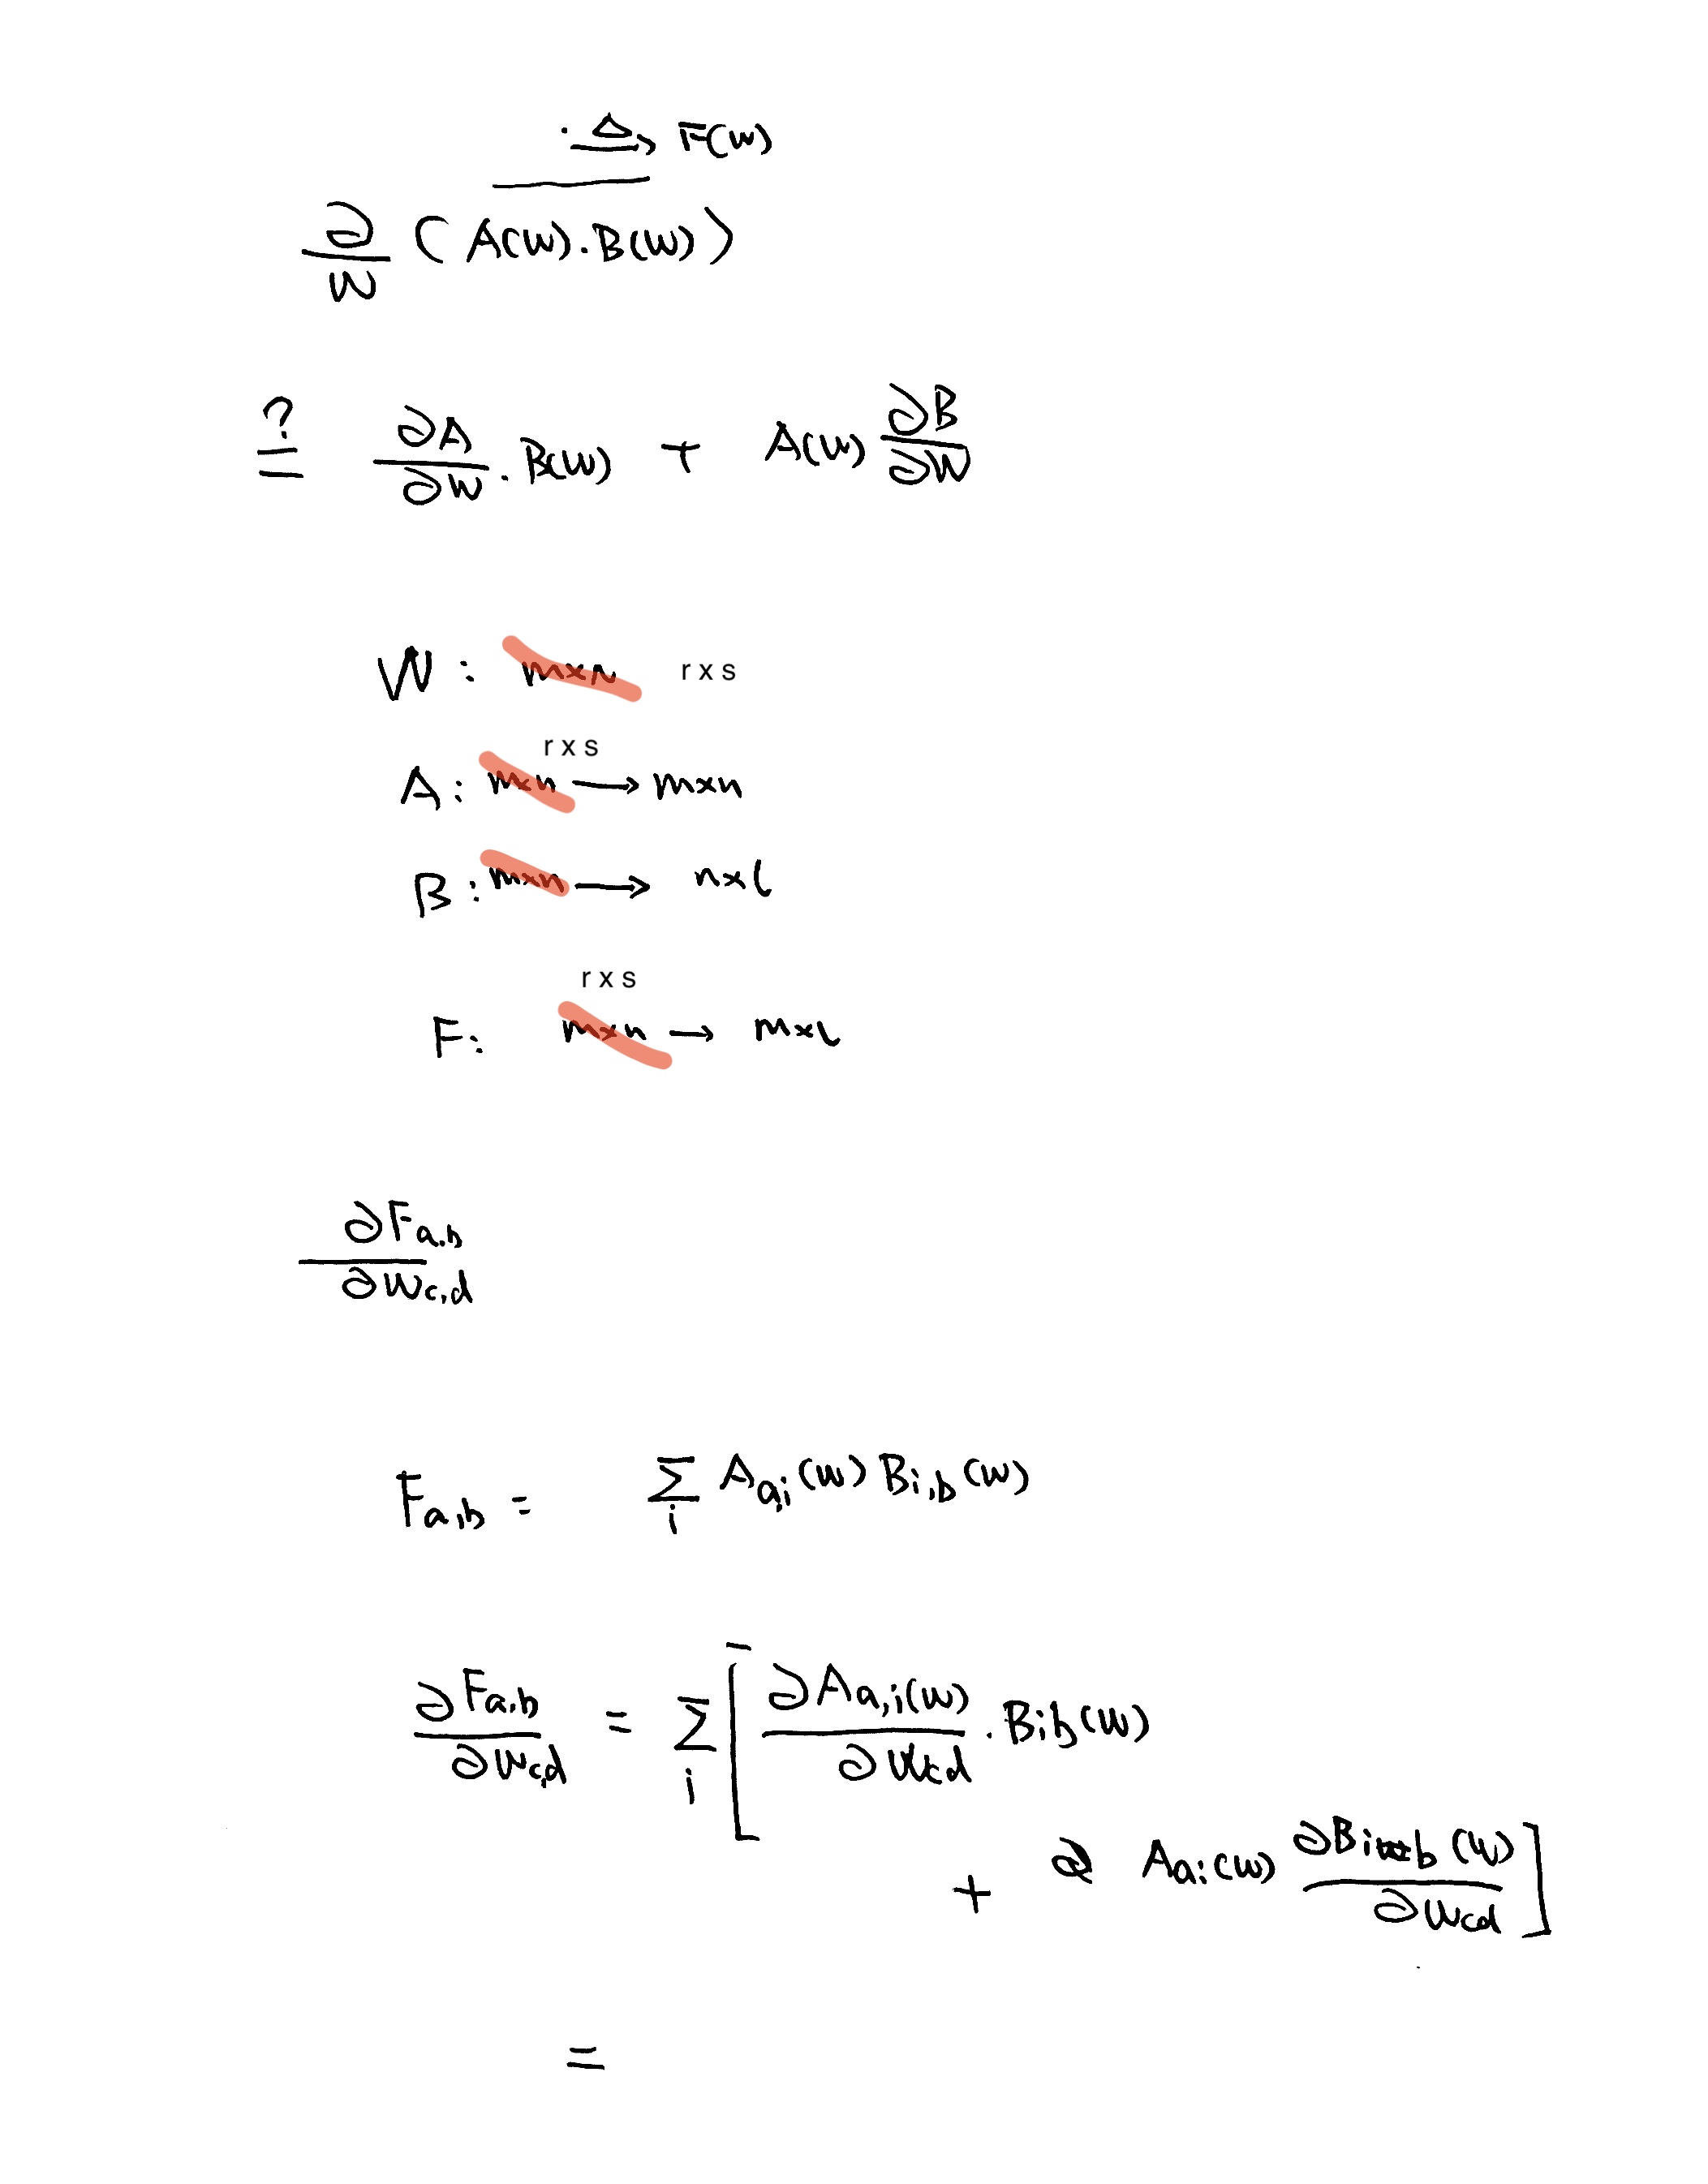 ≜ F(W)
∂/W (A(W).B(W))
≟ ∂A/∂W . B(W) + A(W) ∂B/∂W
W : m×n r x s
r x s
A : m×n → m×n
B : m×n → n×l
r x s
F : m×n → m×l
∂Fa,b/∂Wc,d
Fa,b = Σi Aa,i(W) Bi,b(W)
∂Fa,b/∂Wc,d = Σi [ ∂Aa,i(W)/∂Wcd . Bib(W)
+ ∂ Aai(W) ∂Bib(W)/∂Wcd ]
=